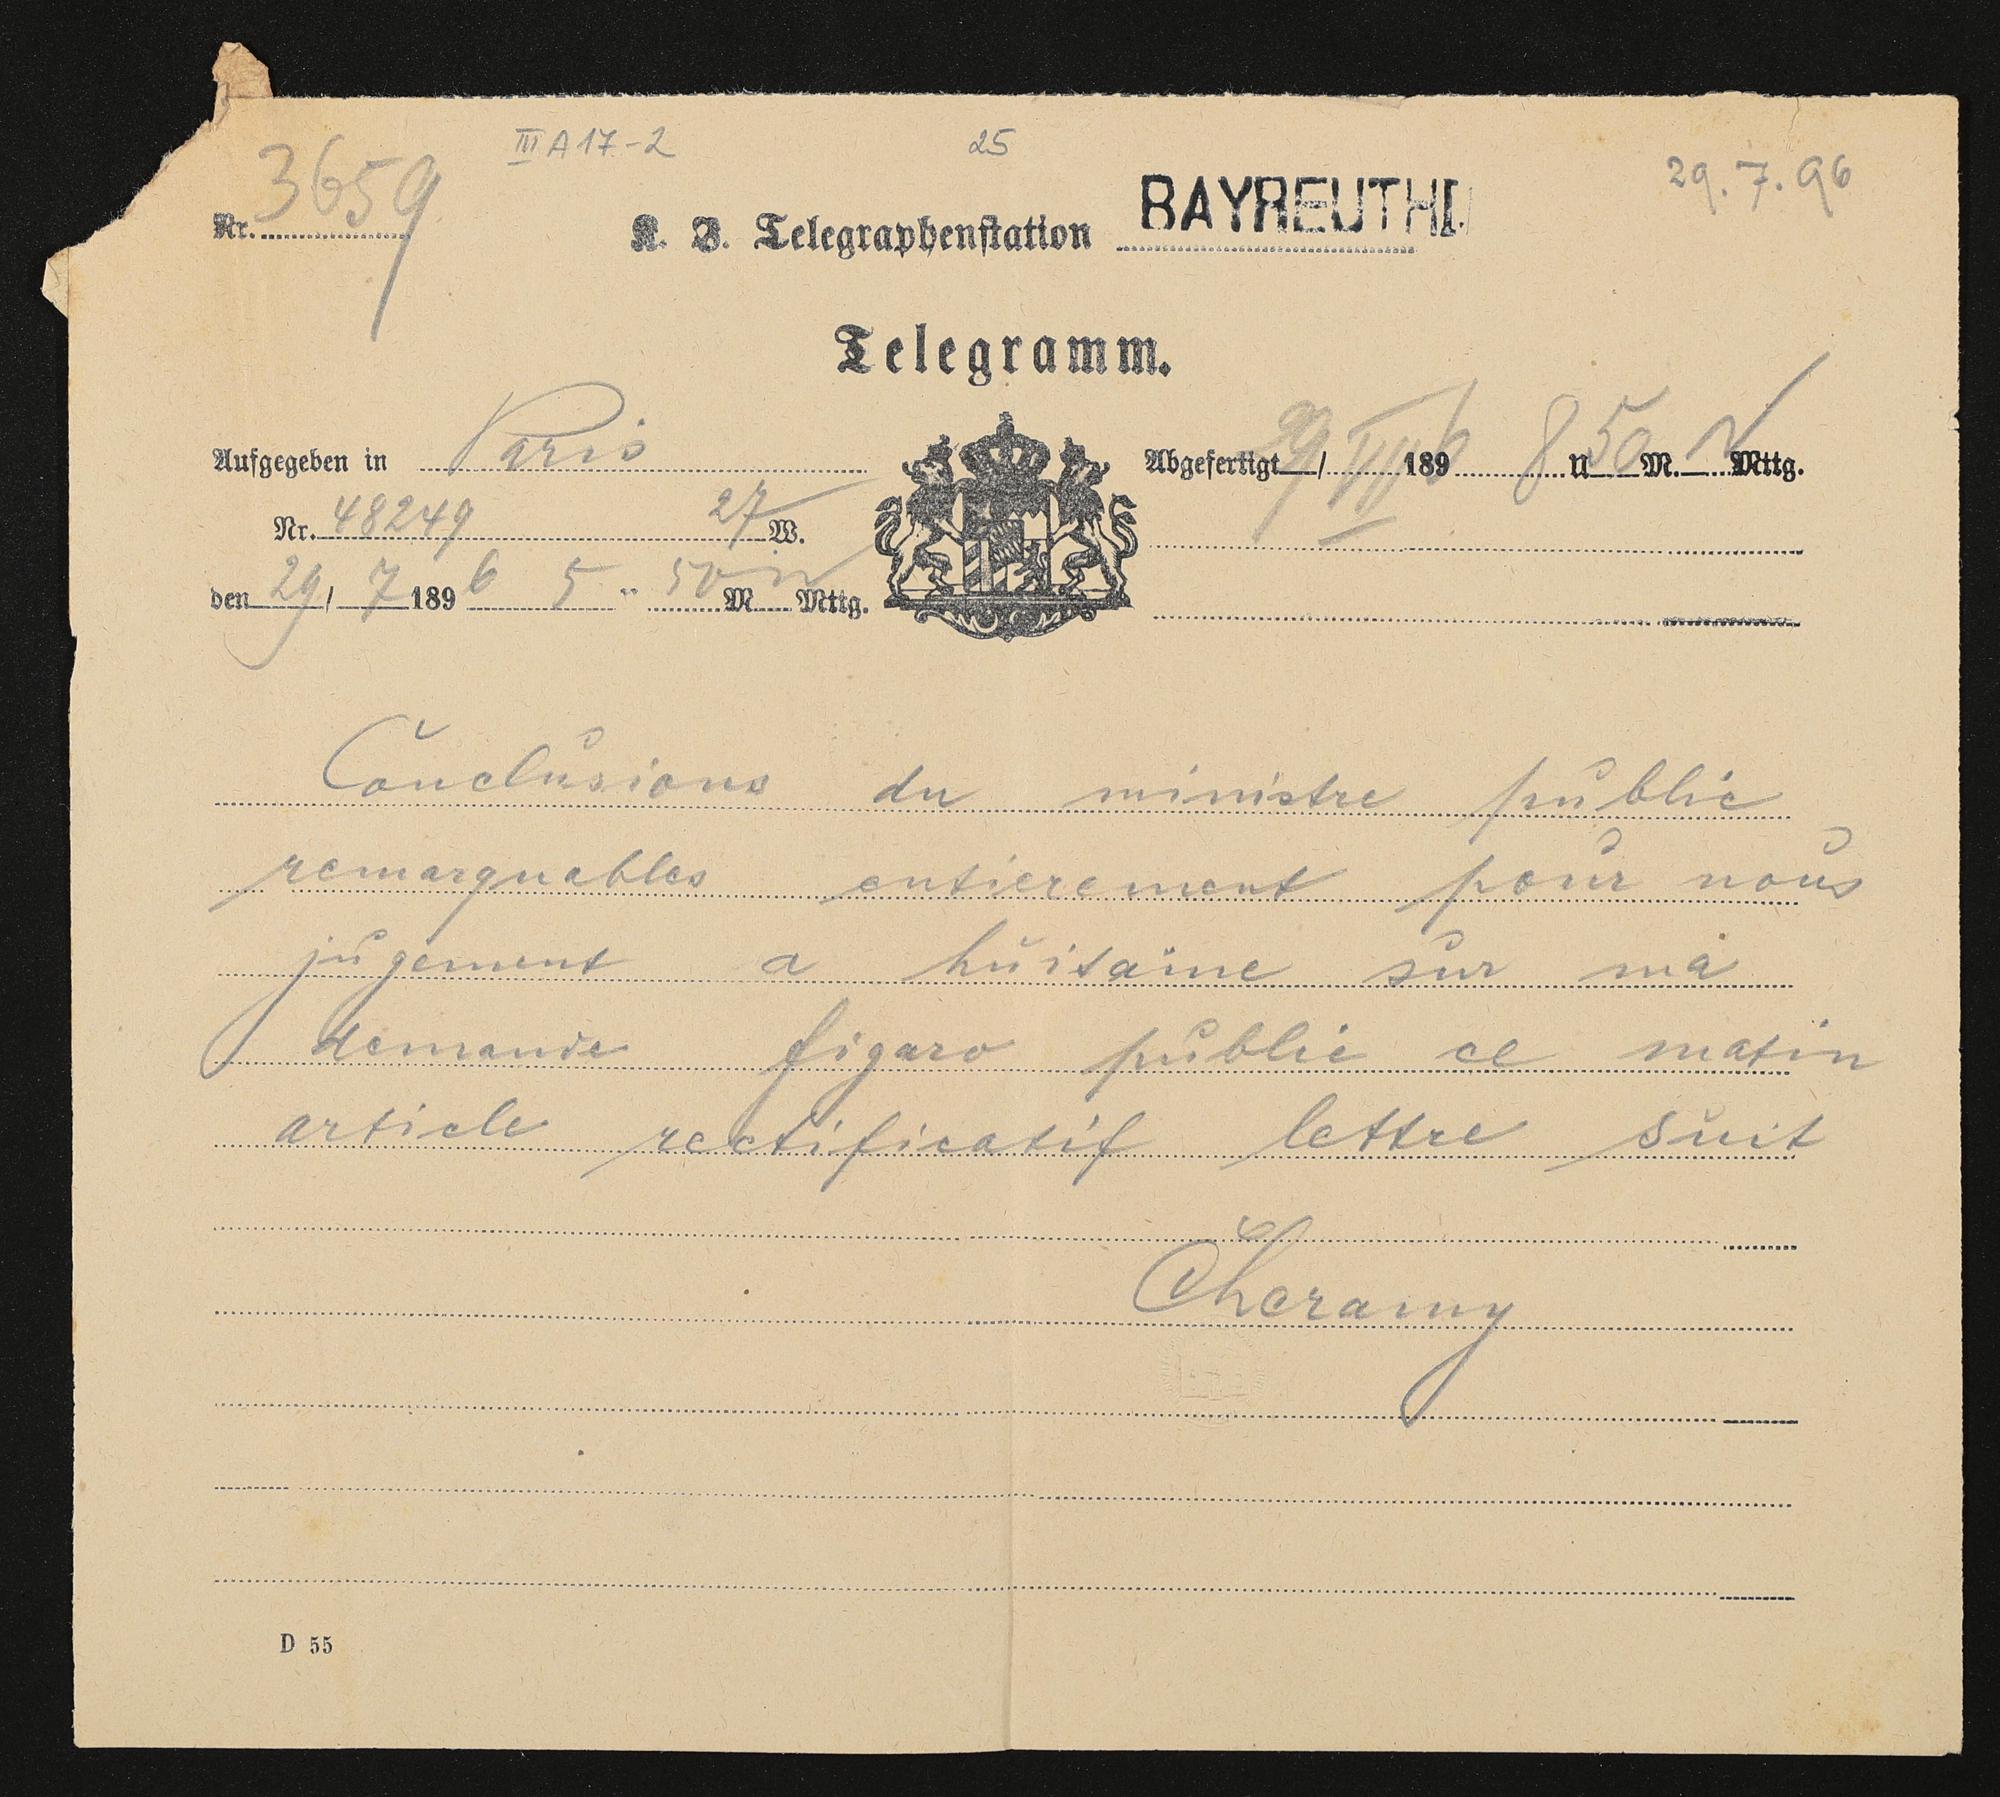 III A 17-2
25
29.7.96
Nr. 3659
K. B. Telegraphenstation BAYREUTH I.
Telegramm.
Aufgegeben in Paris
Nr. 48249 27 W.
den 29/7 1896 5 " 50 M N Mttg.
Abgefertigt 29/VII 1896 8 U 50 M. N Mttg.
Conclusions du ministre public
remarquables entierement pour nous
jugement a huitaine sur ma
demande figaro publie ce matin
article rectificatif lettre suit
Cheramy
D 55